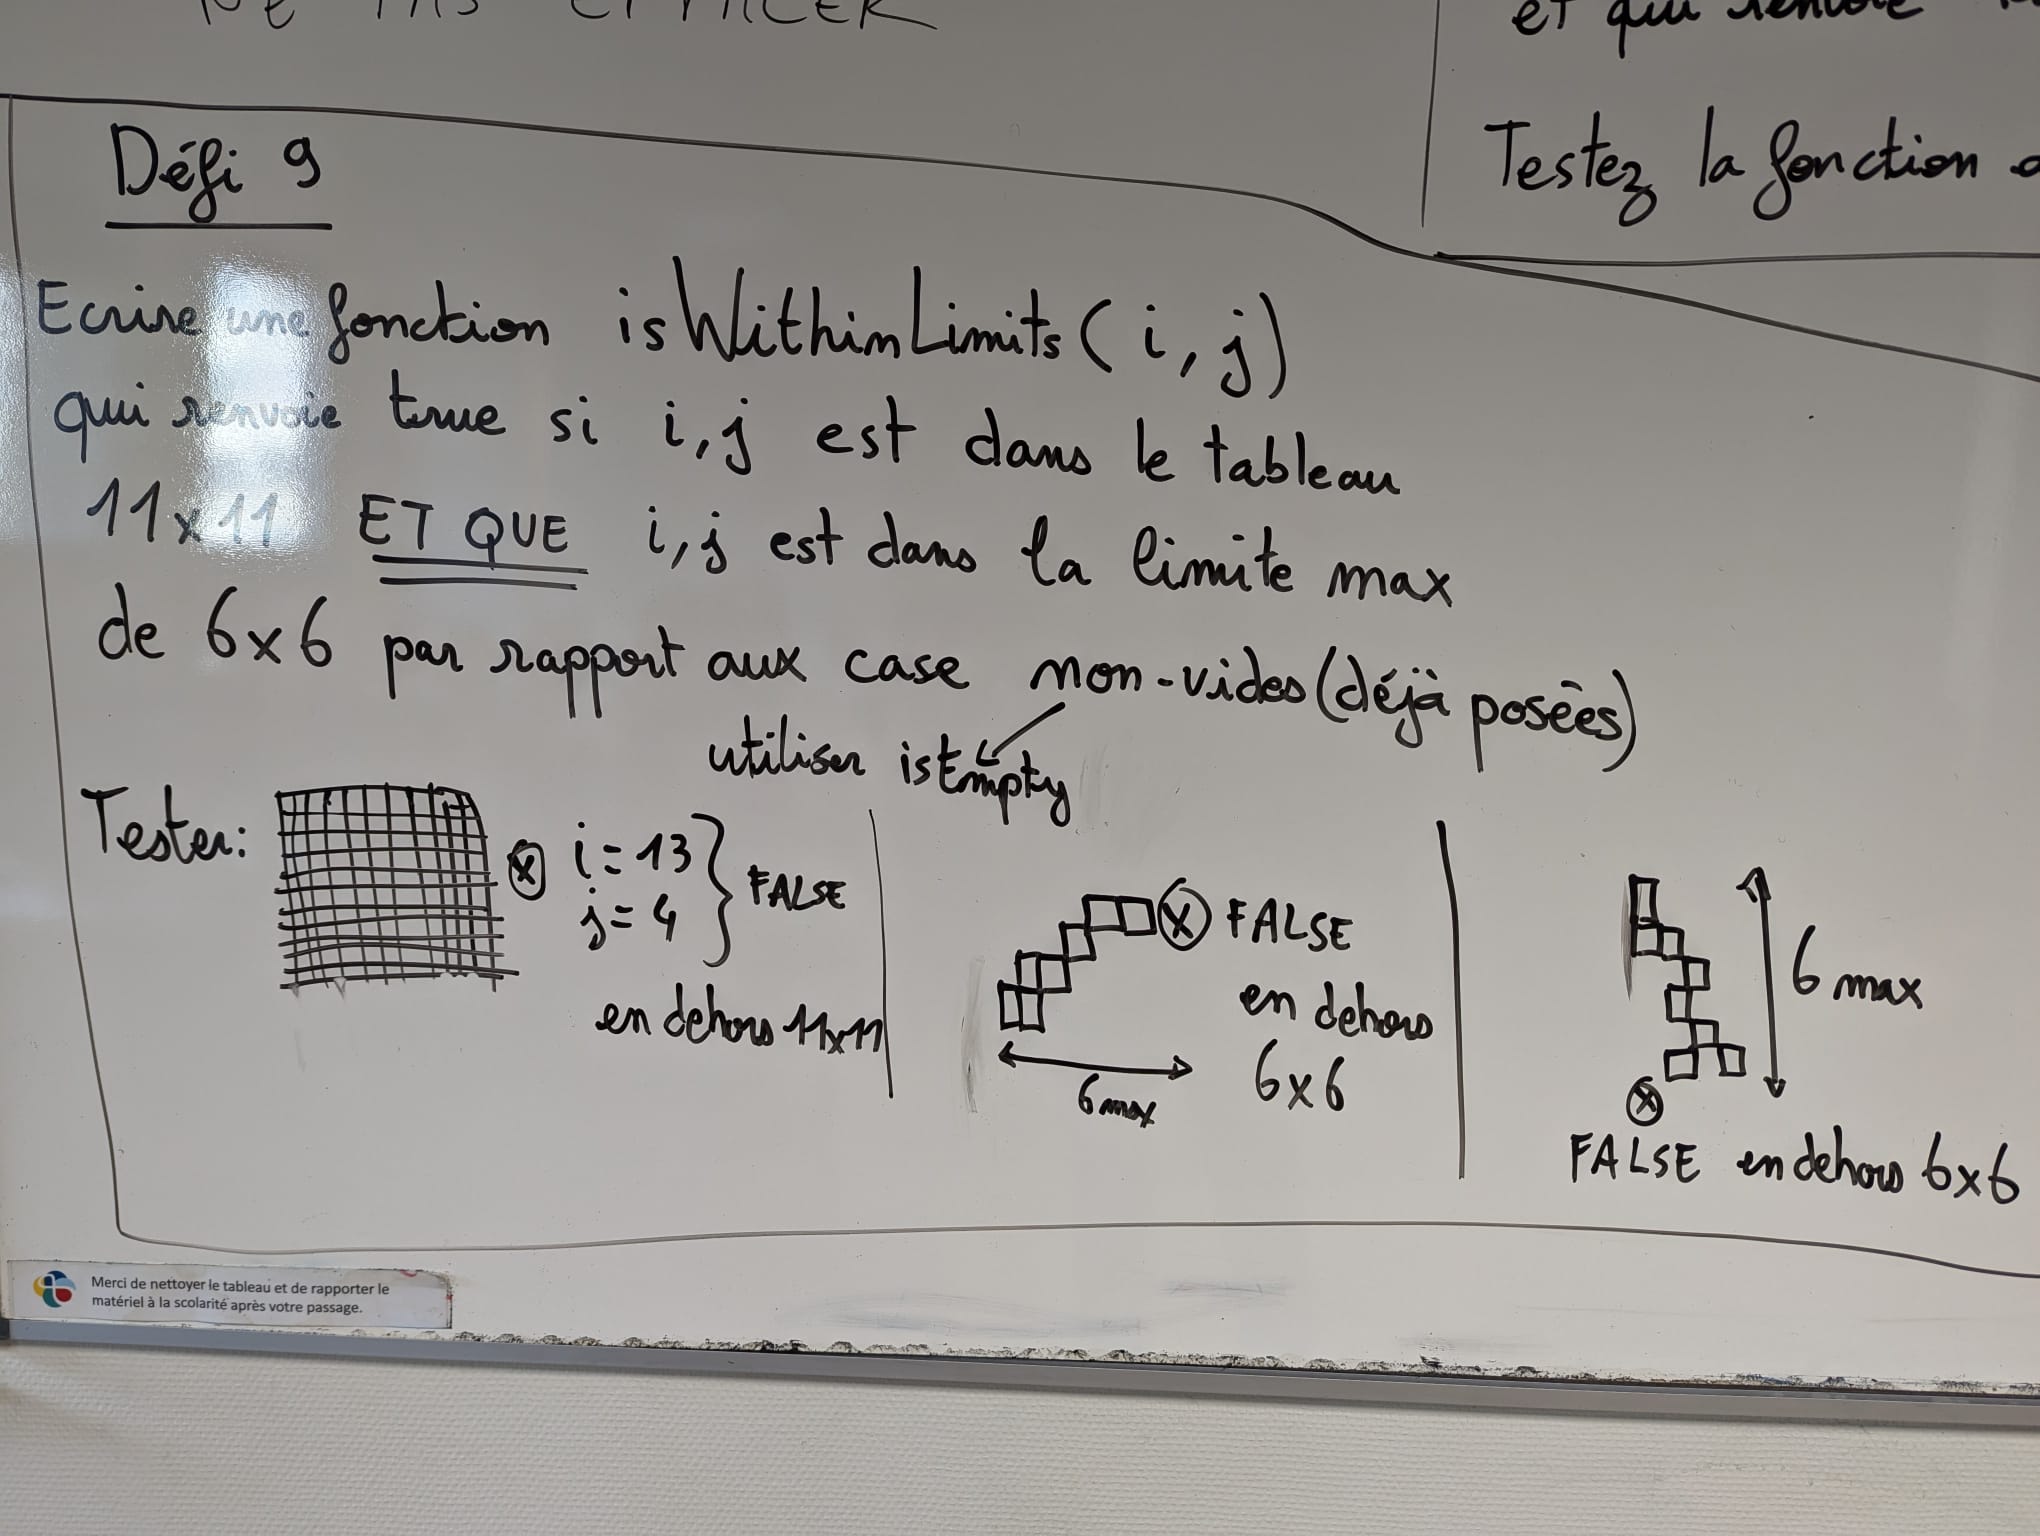 NE PAS EFFACER
et qui renvoie
Testez la fonction
Défi 9
Ecrire une fonction isWithinLimits(i,j)
qui renvoie true si i,j est dans le tableau
11x11 ET QUE i,j est dans la limite max
de 6x6 par rapport aux case non-vides (déjà posées)
utiliser isEmpty
Tester:
x i=13
j=4
FALSE
en dehors 11x11
x FALSE
en dehors
6x6
6 max
6 max
x
FALSE en dehors 6x6
Merci de nettoyer le tableau et de rapporter le
matériel à la scolarité après votre passage.